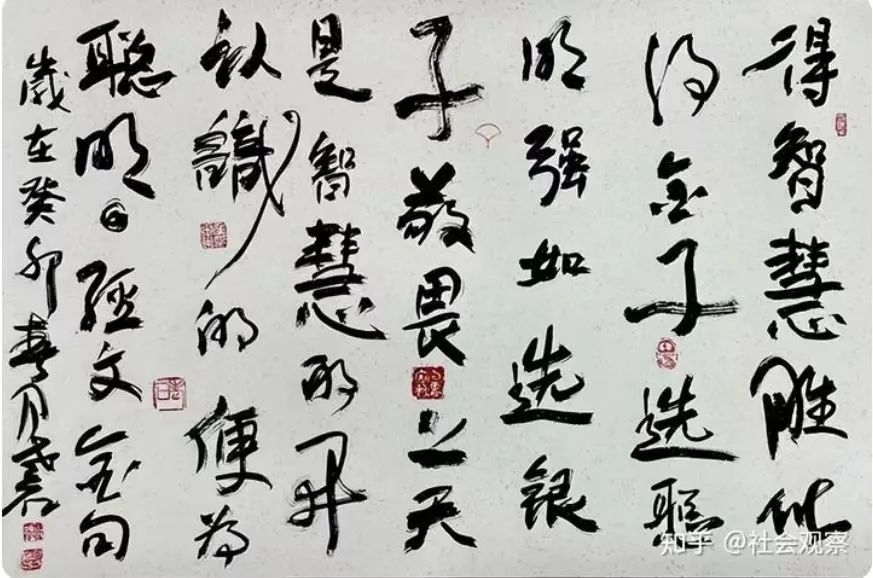 得智慧胜似
得金子选聪
明强如选银
子敬畏上天
是智慧的开
认識的便为
聪明。经文金句
歲在癸卯春月
知乎 @社会观察